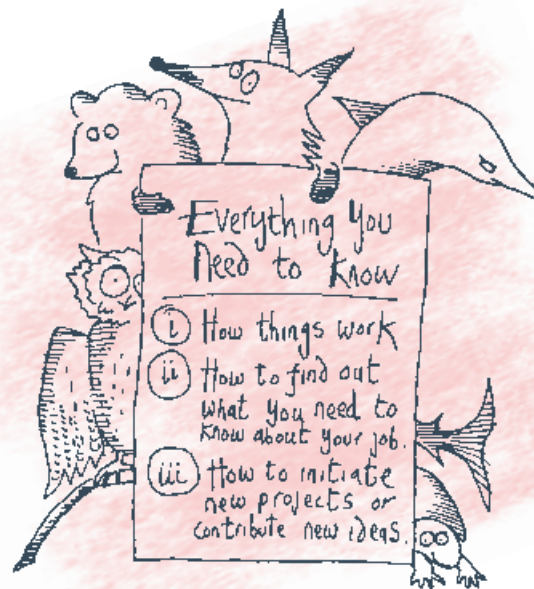 Everything You
Need to Know
i How things work
ii How to find out
what you need to
know about your job.
iii How to initiate
new projects or
contribute new ideas.